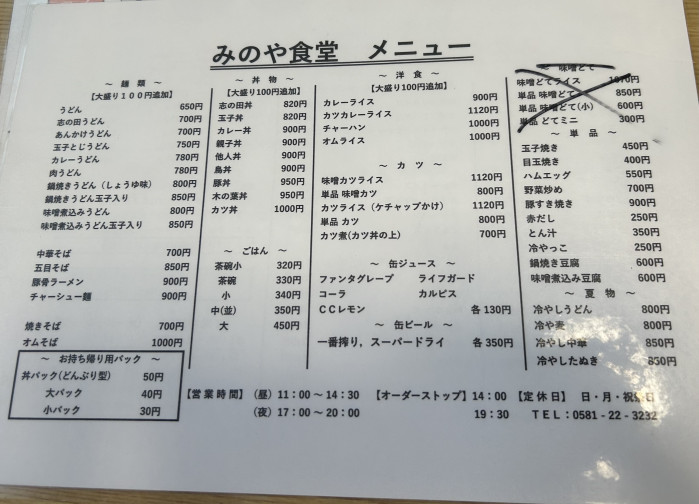 みのや食堂　メニュー
～ 麺 類 ～
【大盛り１００円追加】
うどん 650円
志の田うどん 700円
あんかけうどん 700円
玉子とじうどん 750円
カレーうどん 780円
肉うどん 780円
鍋焼きうどん（しょうゆ味） 800円
鍋焼きうどん玉子入り 850円
味噌煮込みうどん 800円
味噌煮込みうどん玉子入り 850円
中華そば 700円
五目そば 850円
豚骨ラーメン 900円
チャーシュー麺 900円
焼きそば 700円
オムそば 1000円
～ お持ち帰り用パック ～
丼パック(どんぶり型) 50円
大パック 40円
小パック 30円
～ 丼 物 ～
【大盛り100円追加】
志の田丼 820円
玉子丼 820円
カレー丼 900円
親子丼 900円
他人丼 900円
鳥丼 900円
豚丼 950円
木の葉丼 950円
カツ丼 1000円
～ ごはん ～
茶碗小 320円
茶碗 330円
小 340円
中(並) 350円
大 450円
～ 洋 食 ～
【大盛り100円追加】
カレーライス 900円
カツカレーライス 1120円
チャーハン 1000円
オムライス 1000円
～ カ ツ ～
味噌カツライス 1120円
単品 味噌カツ 800円
カツライス（ケチャップかけ） 1120円
単品 カツ 800円
カツ煮(カツ丼の上) 700円
～ 缶ジュース ～
ファンタグレープ ライフガード
コーラ カルピス
ＣＣレモン 各 130円
～ 缶ビール ～
一番搾り，スーパードライ 各 350円
～ 味噌どて ～
味噌どてライス 1070円
単品 味噌どて 850円
単品 味噌どて(小) 600円
単品 どてミニ 300円
～ 単 品 ～
玉子焼き 450円
目玉焼き 400円
ハムエッグ 550円
野菜炒め 700円
豚すき焼き 900円
赤だし 250円
とん汁 350円
冷やっこ 250円
鍋焼き豆腐 600円
味噌煮込み豆腐 600円
～ 夏 物 ～
冷やしうどん 800円
冷や麦 800円
冷やし中華 850円
冷やしたぬき 850円
【営 業 時 間】 （昼）11：00～14：30 【オーダーストップ】14：00 【定 休 日】 日・月・祝祭日
（夜）17：00～20：00 19：30 ＴＥＬ：0581‐22‐3232